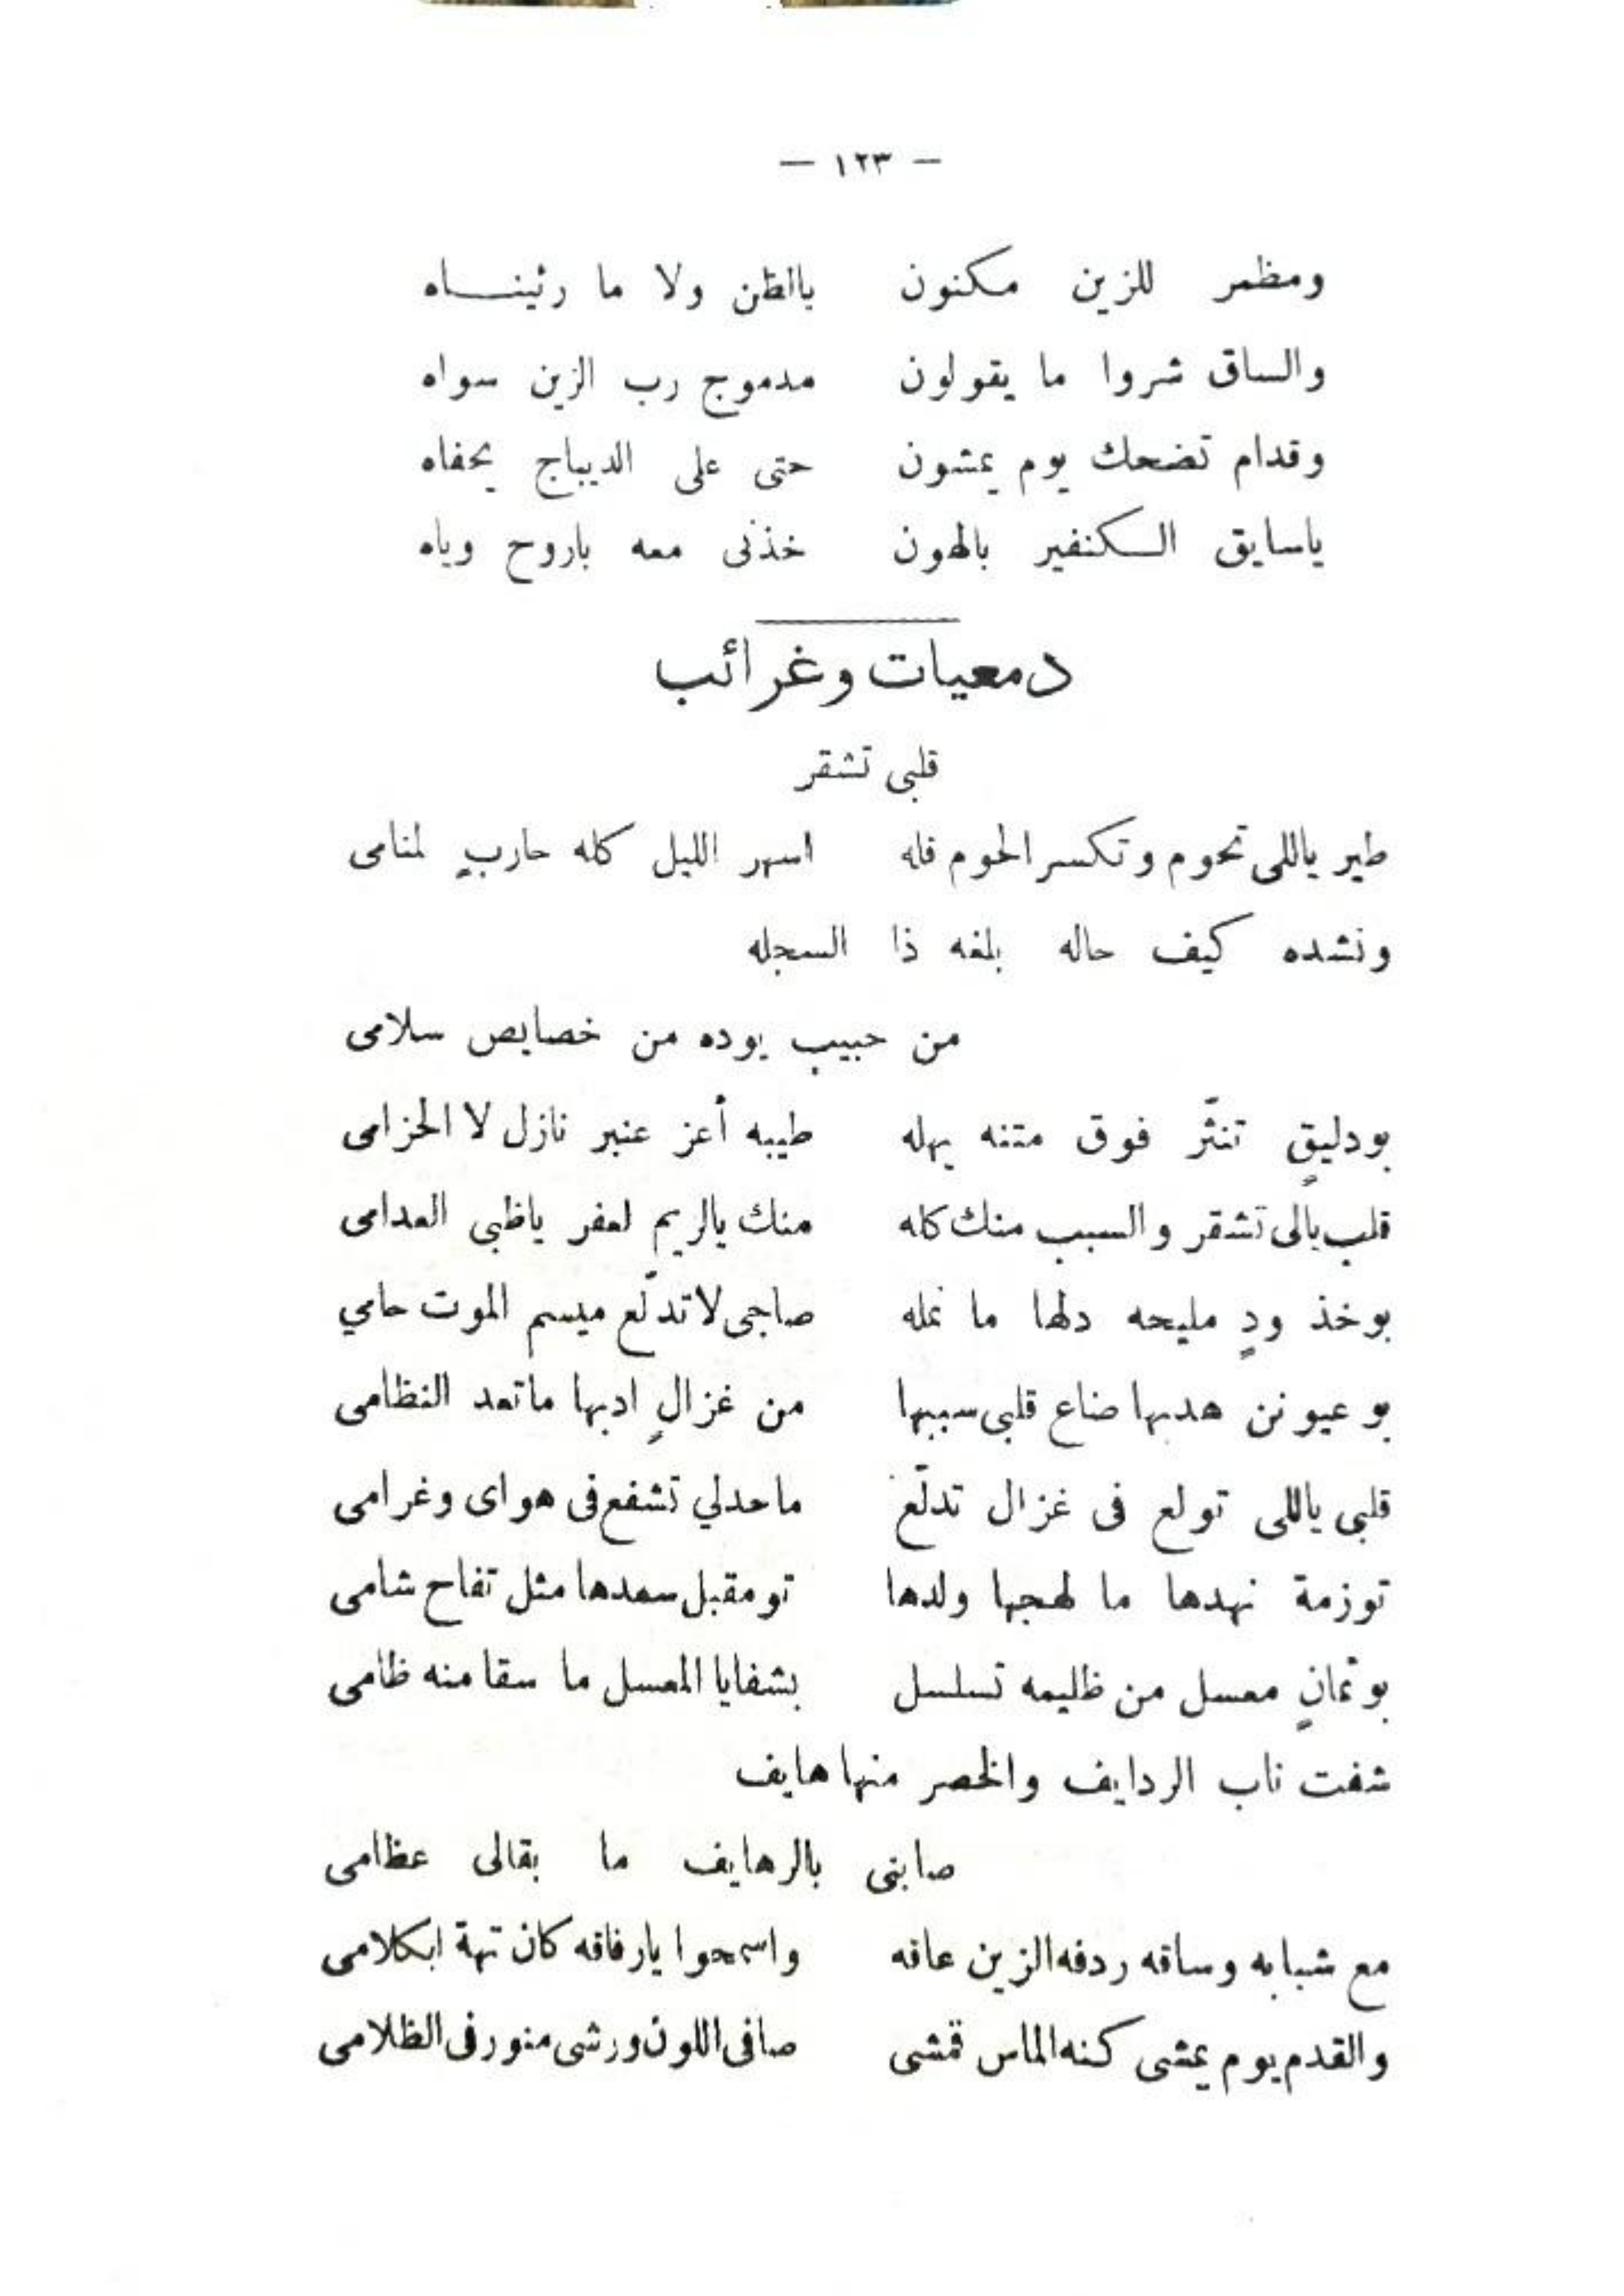 — ١٢٣ —
ومظمر للزين مكنون بالظن ولا ما رئيناه
والساق شروا ما يقولون مدموج رب الزين سواه
وقدام تضحك يوم يمشون حتى على الديباج يحفاه
ياسايق الكنفير بالهون خذنى معه باروح وياه
دمعيات وغرائب
قلبى تشقر
طير ياللى تحوم وتكسر الحوم فله اسهر الليل كله حاربٍ لمنامى
ونشده كيف حاله بلغه ذا السجله
من حبيب يوده من خصايص سلامى
بودليقٍ تنثّر فوق متنه يهله طيبه أعز عنبر نازل لا الخزامى
قلب يالى تشقر والسبب منك كله منك يالريم لعفر ياظبى العدامى
بوخذ ودٍ مليحه دلها ما نمله صاحبى لا تدلّع ميسم الموت حامي
بو عيونن هدبها ضاع قلبى سببها من غزالٍ ادبها ماتعد النظامى
قلبى ياللى تولع فى غزال تدلّع ماحدلي تشفع فى هواى وغرامى
توزمة نهدها ما لهجها ولدها تو مقبل سعدها مثل تفاح شامى
بو ثمانٍ معسل من ظليمه تسلسل بشفايا المعسل ما سقا منه ظامى
شفت ناب الردايف والخصر منها هايف
صابنى بالرهايف ما بقالى عظامى
مع شبابه وساقه ردفه الزين عاقه واسمحوا يارفاقه كان تهة ابكلامى
والقدم يوم يمشى كنه الماس قمشى صافى اللون ورشى منور فى الظلامى